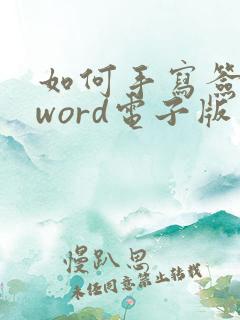 如何手寫簽
word電子版
慢趴思
未任同意禁止轉載